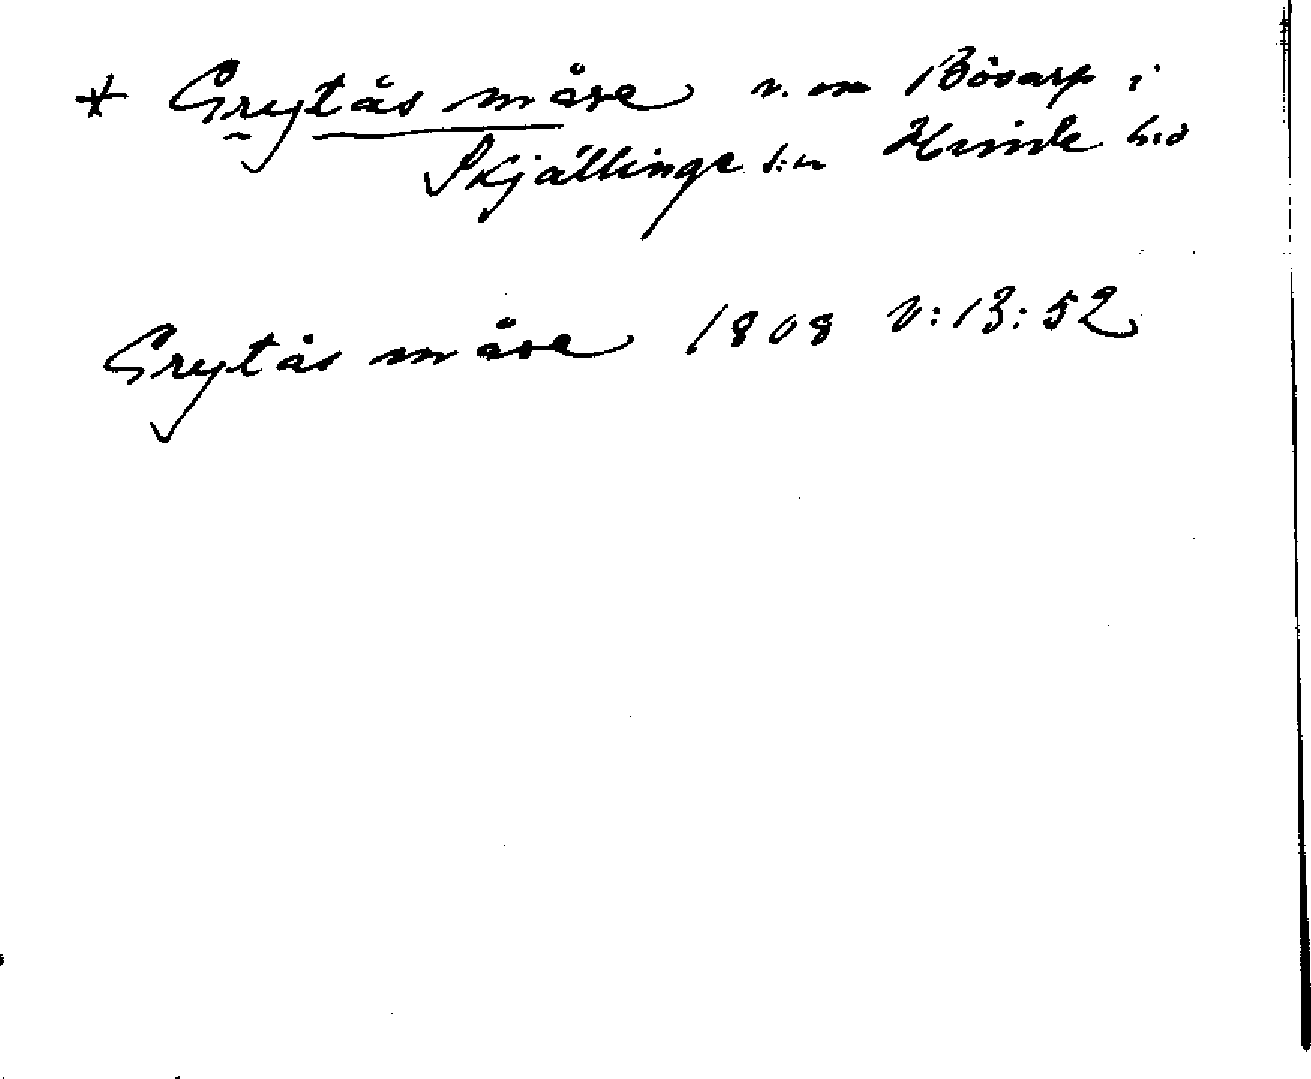 * Grytås måse v. om Bösarp i
Skjällinge s:n Kinds h:d
Grytås måse 1808 V:13:52